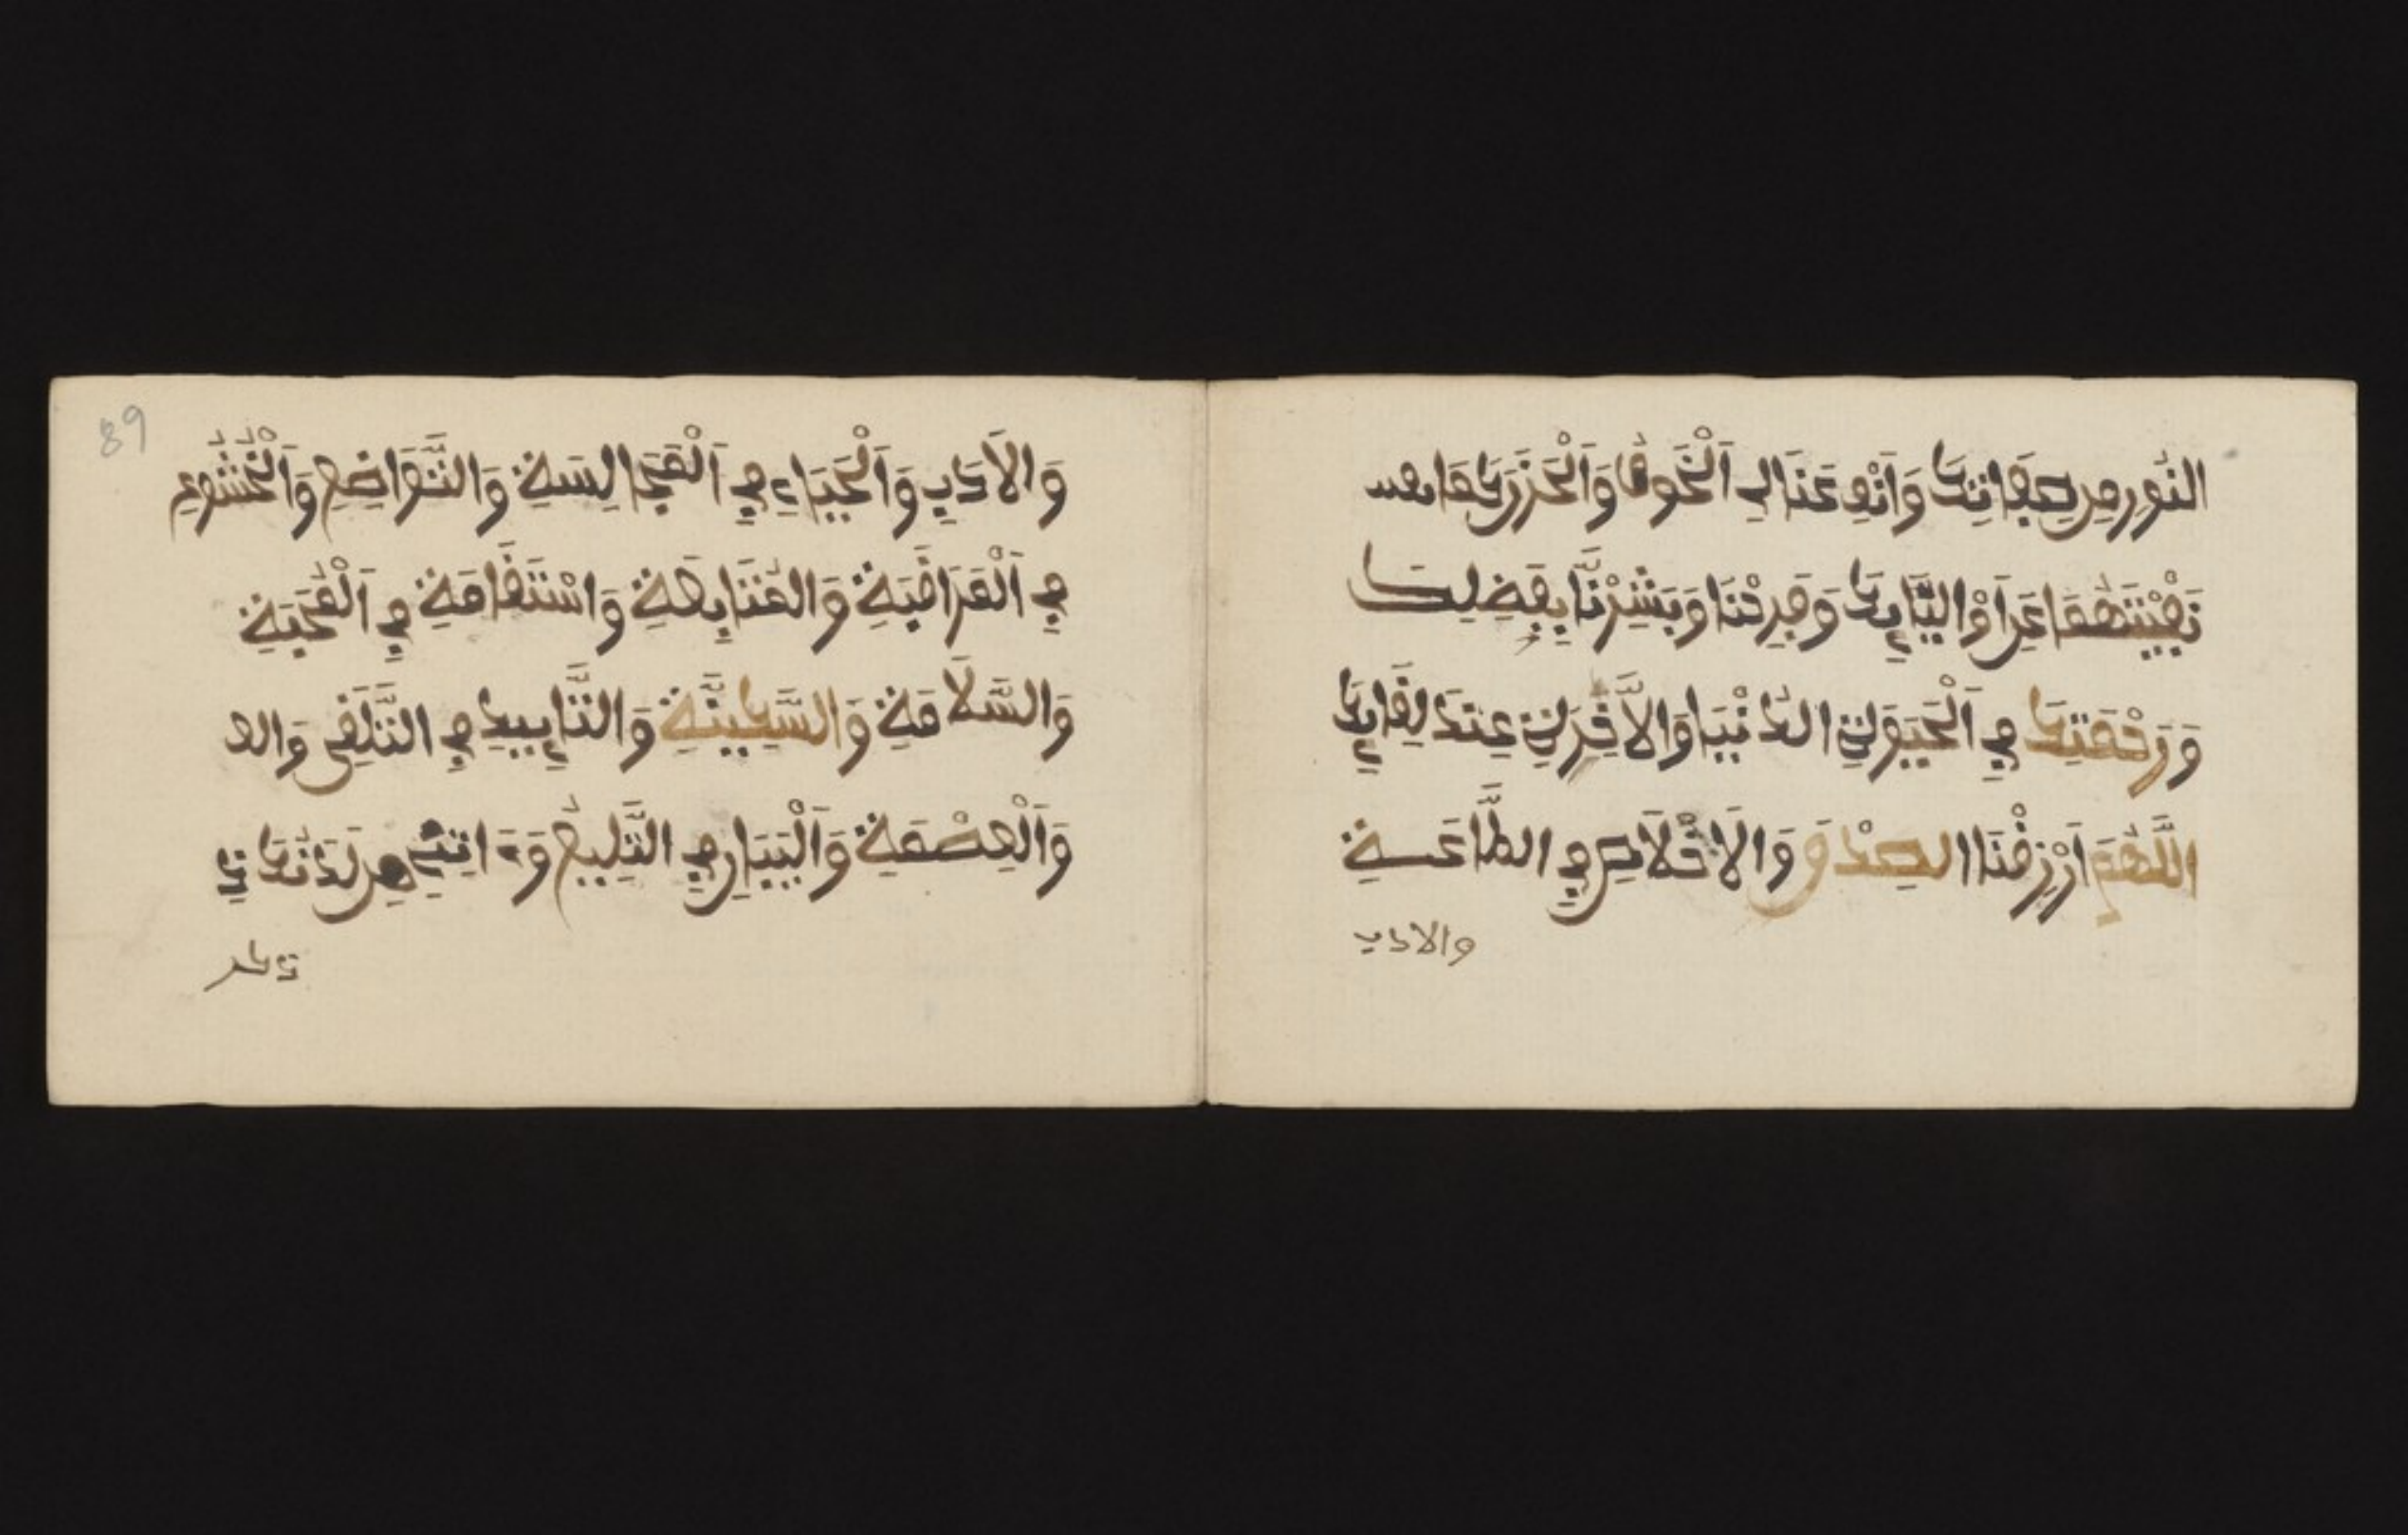 النُّورِ مِن صِفَاتِكَ وَانْفِ عَنَا لِي اَلْخَوفُ وَاَلْحَزَنَ كَمَا
نَفَيْتَهُمَا عَنَ اَوْلِيَّايِكَ وَفَرِحْنَا وَبَشِرْنَّا بِفَضْلِكَ
وَرَحْمَتِكَ فِي اَلْحَيَوةِ الدُّنْيَا وَالاَّخِرَةِ عِندَ لِقَايِكَ
اللَّهُمَ اَرْزِقْنَا الصِدْقَ وَالاَخْلاَصِ فِي الطَّاعَةِ
والادب
89
وَالاَدَبِ وَاَلْحَيَاءِ فِي اَلْمَجَالِسَةِ وَالتَّوَاضِعِ وَاَلْخُشُوعِ
فِي اَلْمَرَاقَبَةِ وَالمُتَابِعَةِ وَاسْتَقَامَةِ فِي اَلْمُحَبَةِ
وَالسَّلاَمَةِ وَالسَّكِينَّةِ وَالتَّايِيدِ فِي التَّلَقِى
وَاَلْعِصْمَةِ وَاَلْبَيَانِ فِي التَّلِيغُ وَءَاتِنِي مِن لَدُنْكَ